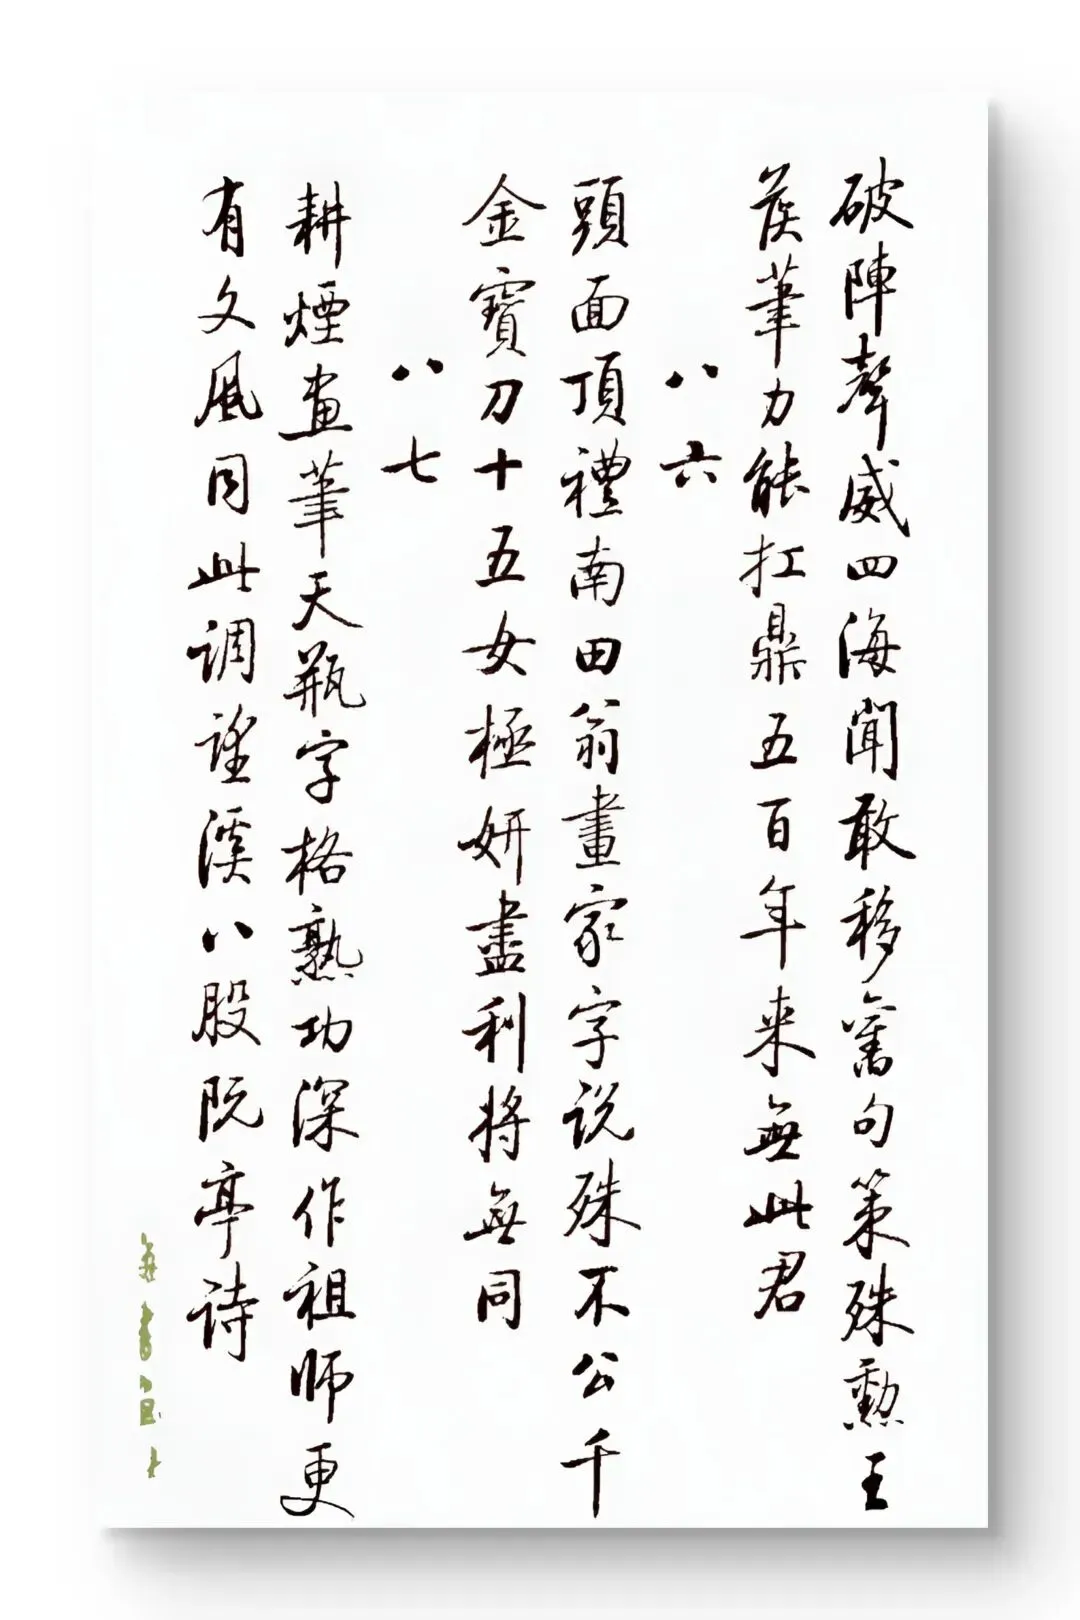 破陣聲威四海聞敢移舊句策殊勳王
侯筆力能扛鼎五百年来無此君
八六
頭面頂禮南田翁畫家字説殊不公千
金寶刀十五女極妍盡利将無同
八七
耕煙畫筆天瓶字格熟功深作祖师更
有文風同此调望溪八股阮亭诗